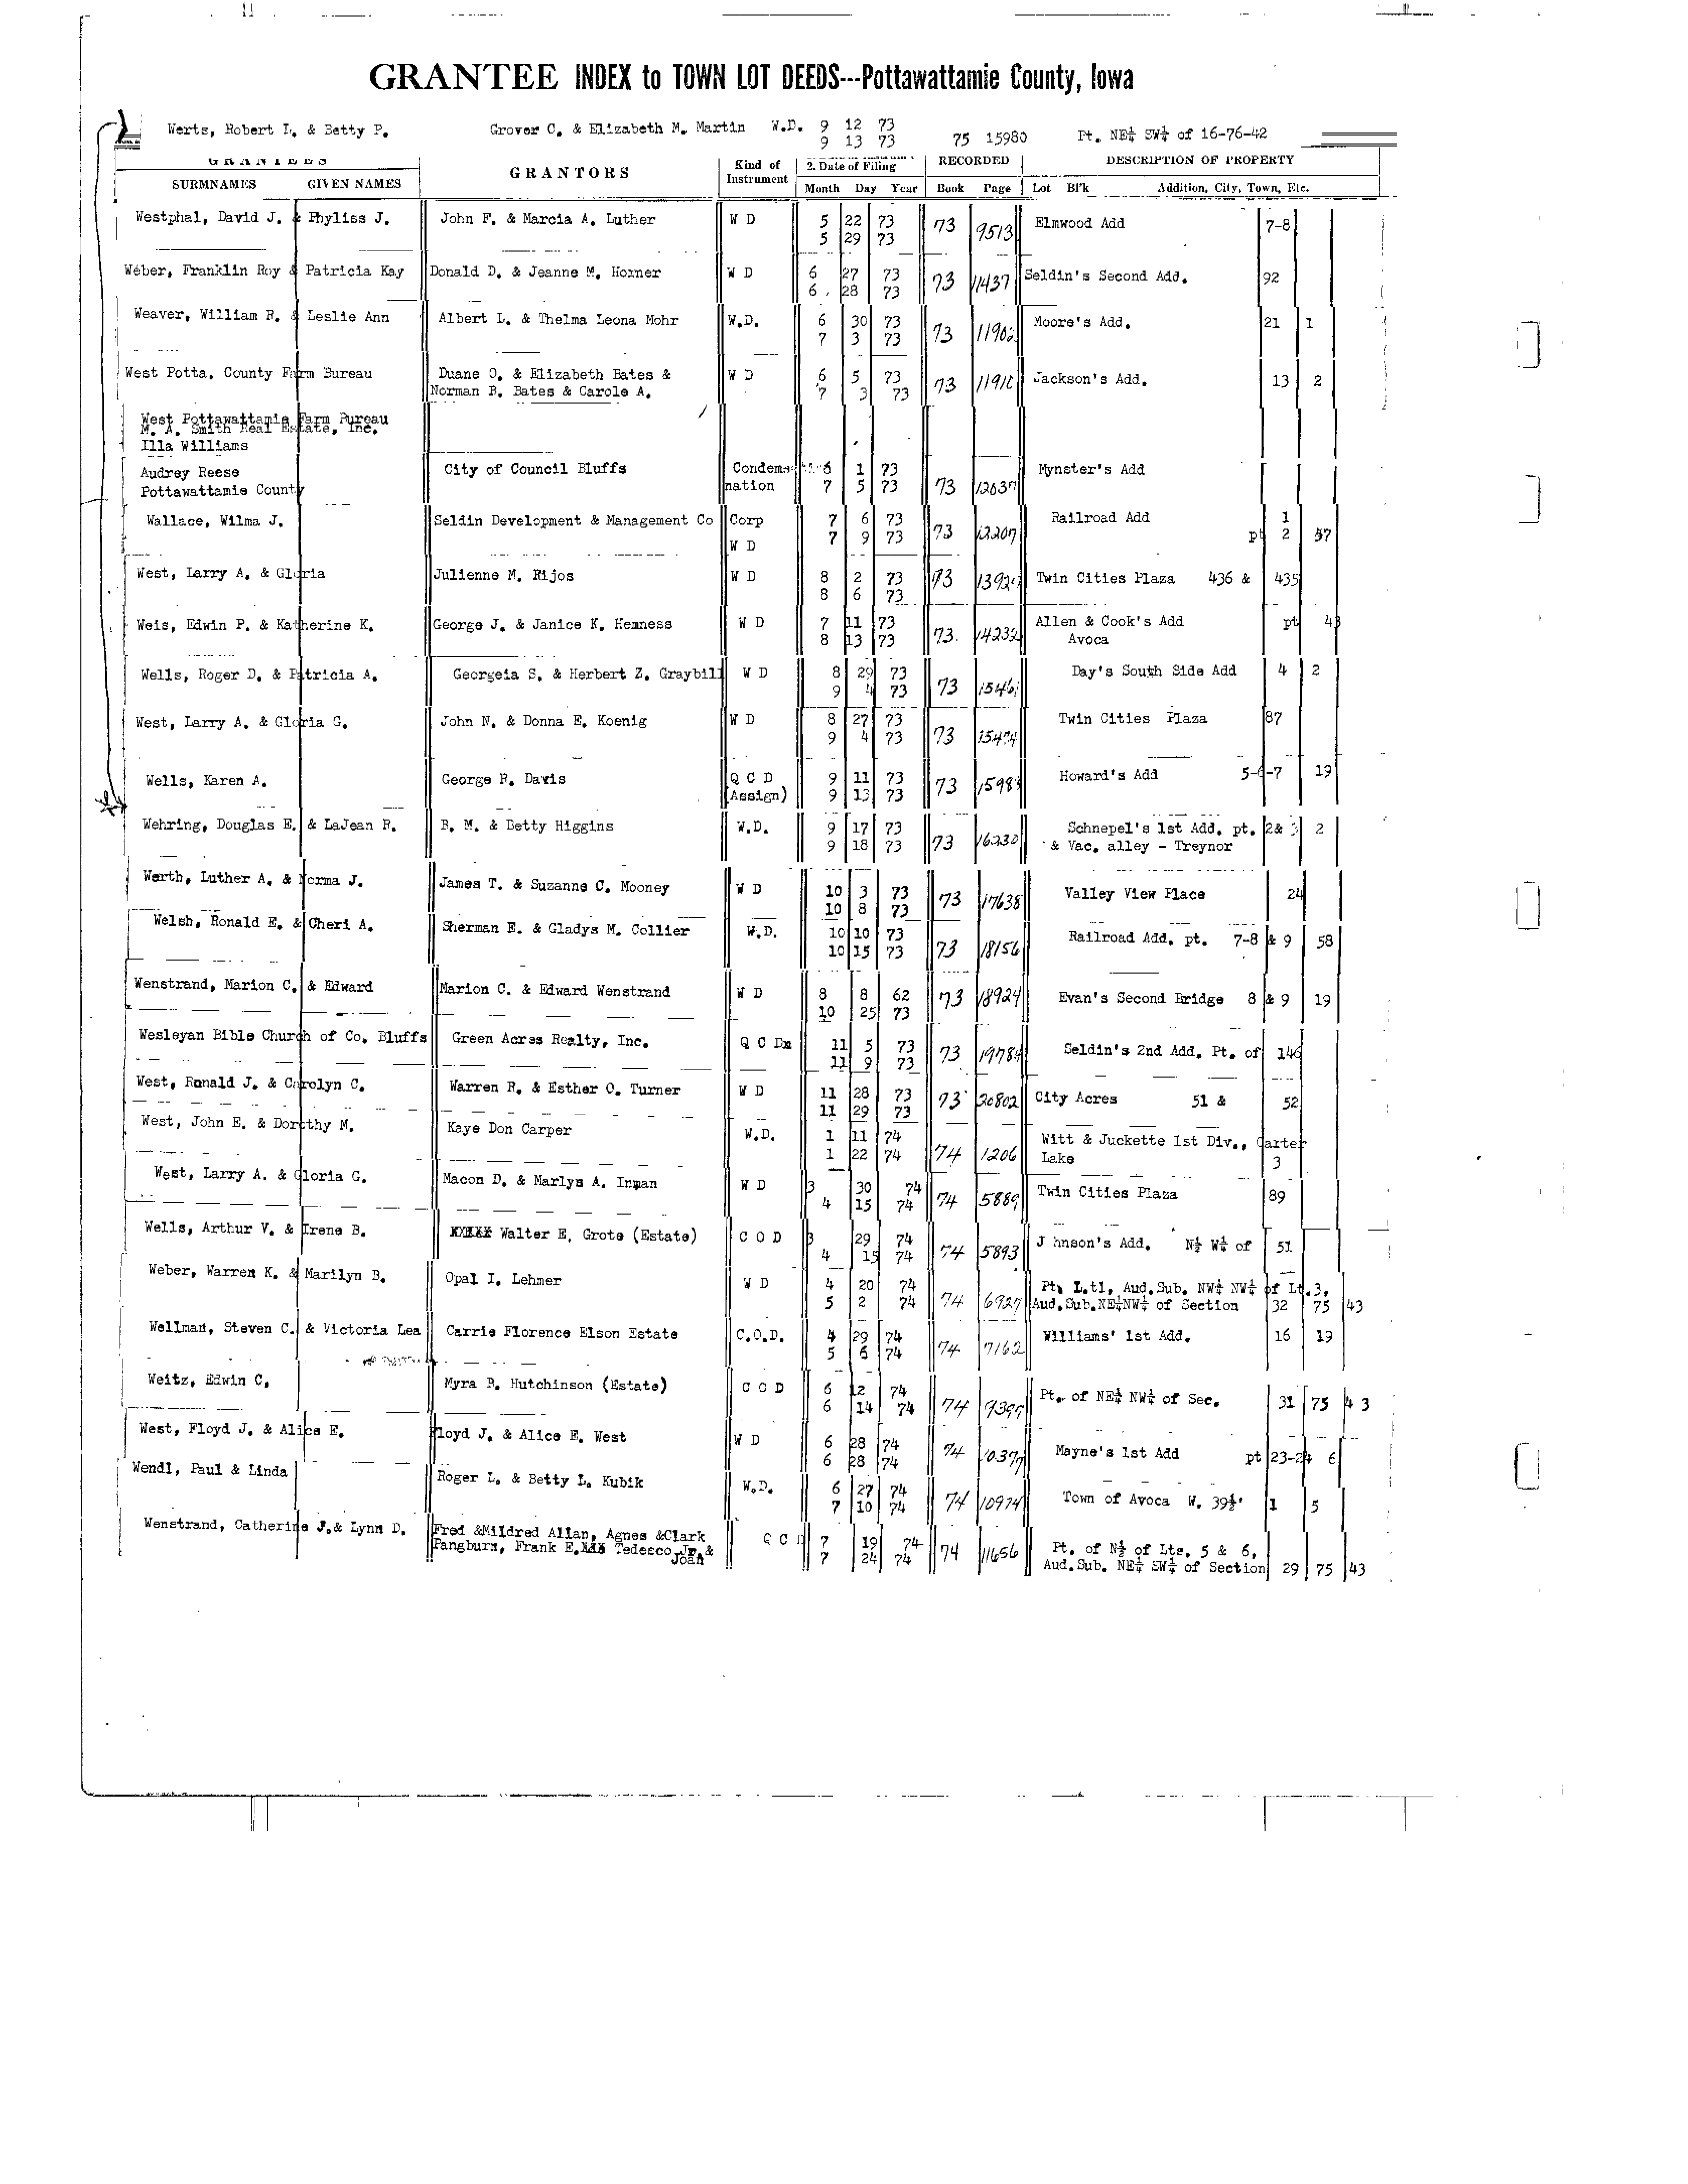 GRANTEE INDEX to TOWN LOT DEEDS---Pottawattamie County, Iowa
Werts, Robert L. & Betty P. Grover C. & Elizabeth M. Martin W.D. 9 12 73
9 13 73 75 15980 Pt. NE¼ SW¼ of 16-76-42
GRANTEES GRANTORS Kind of Instrument 2. Date of Filing RECORDED DESCRIPTION OF PROPERTY
SURMNAMES GIVEN NAMES Month Day Year Book Page Lot Bl'k Addition, City, Town, Etc.
Westphal, David J. & Phyliss J. John F. & Marcia A. Luther W D 5 22 73 Elmwood Add 7-8
5 29 73 73 9513
Weber, Franklin Roy & Patricia Kay Donald D. & Jeanne M. Horner W D 6 27 73 Seldin's Second Add. 92
6 28 73 73 11437
Weaver, William R. & Leslie Ann Albert L. & Thelma Leona Mohr W.D. 6 30 73 Moore's Add. 21 1
7 3 73 73
West Potta. County Farm Bureau Duane O. & Elizabeth Bates & W D 6 5 73 Jackson's Add. 13 2
Norman R. Bates & Carole A. 7 3 73 73
West Pottawattamie Farm Bureau
M. A. Smith Real Estate, Inc.
Illa Williams
Audrey Reese City of Council Bluffs Condem- 6 1 73 Mynster's Add
Pottawattamie County nation 7 5 73 73
Wallace, Wilma J. Seldin Development & Management Co Corp 7 6 73 Railroad Add 1
W D 7 9 73 73 pt 2 57
West, Larry A. & Gloria Julienne M. Rijos W D 8 2 73 73 Twin Cities Plaza 436 & 435
8 6 73
Weis, Edwin P. & Katherine K. George J. & Janice K. Hemness W D 7 11 73 Allen & Cook's Add pt 43
8 13 73 73. 14232 Avoca
Wells, Roger D. & Patricia A. Georgeia S. & Herbert Z. Graybill W D 8 29 73 Day's South Side Add 4 2
9 4 73 73 15461
West, Larry A. & Gloria G. John N. & Donna E. Koenig W D 8 27 73 Twin Cities Plaza 87
9 4 73 73
Wells, Karen A. George R. Davis Q C D 9 11 73 Howard's Add 5-6-7 19
(Assign) 9 13 73 73
Wehring, Douglas E. & LaJean R. B. M. & Betty Higgins W.D. 9 17 73 Schnepel's 1st Add. pt. 2& 3 2
9 18 73 73 16230 & Vac. alley - Treynor
Werth, Luther A. & Norma J. James T. & Suzanne C. Mooney W D 10 3 73 Valley View Place 24
10 8 73 73 17638
Welsh, Ronald E. & Cheri A. Sherman E. & Gladys M. Collier W.D. 10 10 73 Railroad Add. pt. 7-8 & 9 58
10 15 73 73 18156
Wenstrand, Marion C. & Edward Marion C. & Edward Wenstrand W D 8 8 62 73 18924 Evan's Second Bridge 8 & 9 19
10 25 73
Wesleyan Bible Church of Co. Bluffs Green Acres Realty, Inc. Q C D 11 5 73 Seldin's 2nd Add. Pt. of 146
11 9 73 73 19784
West, Ronald J. & Carolyn C. Warren R. & Esther O. Turner W D 11 28 73 73 20802 City Acres 51 & 52
11 29 73
West, John E. & Dorothy M. Kaye Don Carper W.D. 1 11 74 Witt & Juckette 1st Div., Carter
1 22 74 74 1206 Lake 3
West, Larry A. & Gloria G. Macon D. & Marlys A. Inman W D 3 30 74 Twin Cities Plaza 89
4 15 74 74 5889
Wells, Arthur V. & Irene B. Walter E. Grote (Estate) C O D 3 29 74 J hnson's Add. N½ W¼ of 51
4 15 74 74 5893
Weber, Warren K. & Marilyn B. Opal I. Lehmer W D 4 20 74 Pt. L.tl, Aud.Sub. NW¼ NW¼ of Lt.3,
5 2 74 74 6927 Aud.Sub.NE¼NW¼ of Section 32 75 43
Wellman, Steven C. & Victoria Lea Carrie Florence Elson Estate C.O.D. 4 29 74 Williams' 1st Add. 16 19
5 6 74 74 7162
Weitz, Edwin C. Myra R. Hutchinson (Estate) C O D 6 12 74 Pt. of NE¼ NW¼ of Sec. 31 75 43
6 14 74 74
West, Floyd J. & Alice E. Floyd J. & Alice E. West W D 6 28 74 Mayne's 1st Add pt 23-24 6
6 28 74 74
Wendl, Paul & Linda Roger L. & Betty L. Kubik W.D. 6 27 74 Town of Avoca W. 39½' 1 5
7 10 74 74 10974
Wenstrand, Catherine J.& Lynn D. Fred &Mildred Allan, Agnes &Clark Q C D 7 19 74 Pt. of N½ of Lts. 5 & 6,
Pangburn, Frank E. Tedesco Jr.& Joan 7 24 74 74 11656 Aud.Sub. NE¼ SW¼ of Section 29 75 43